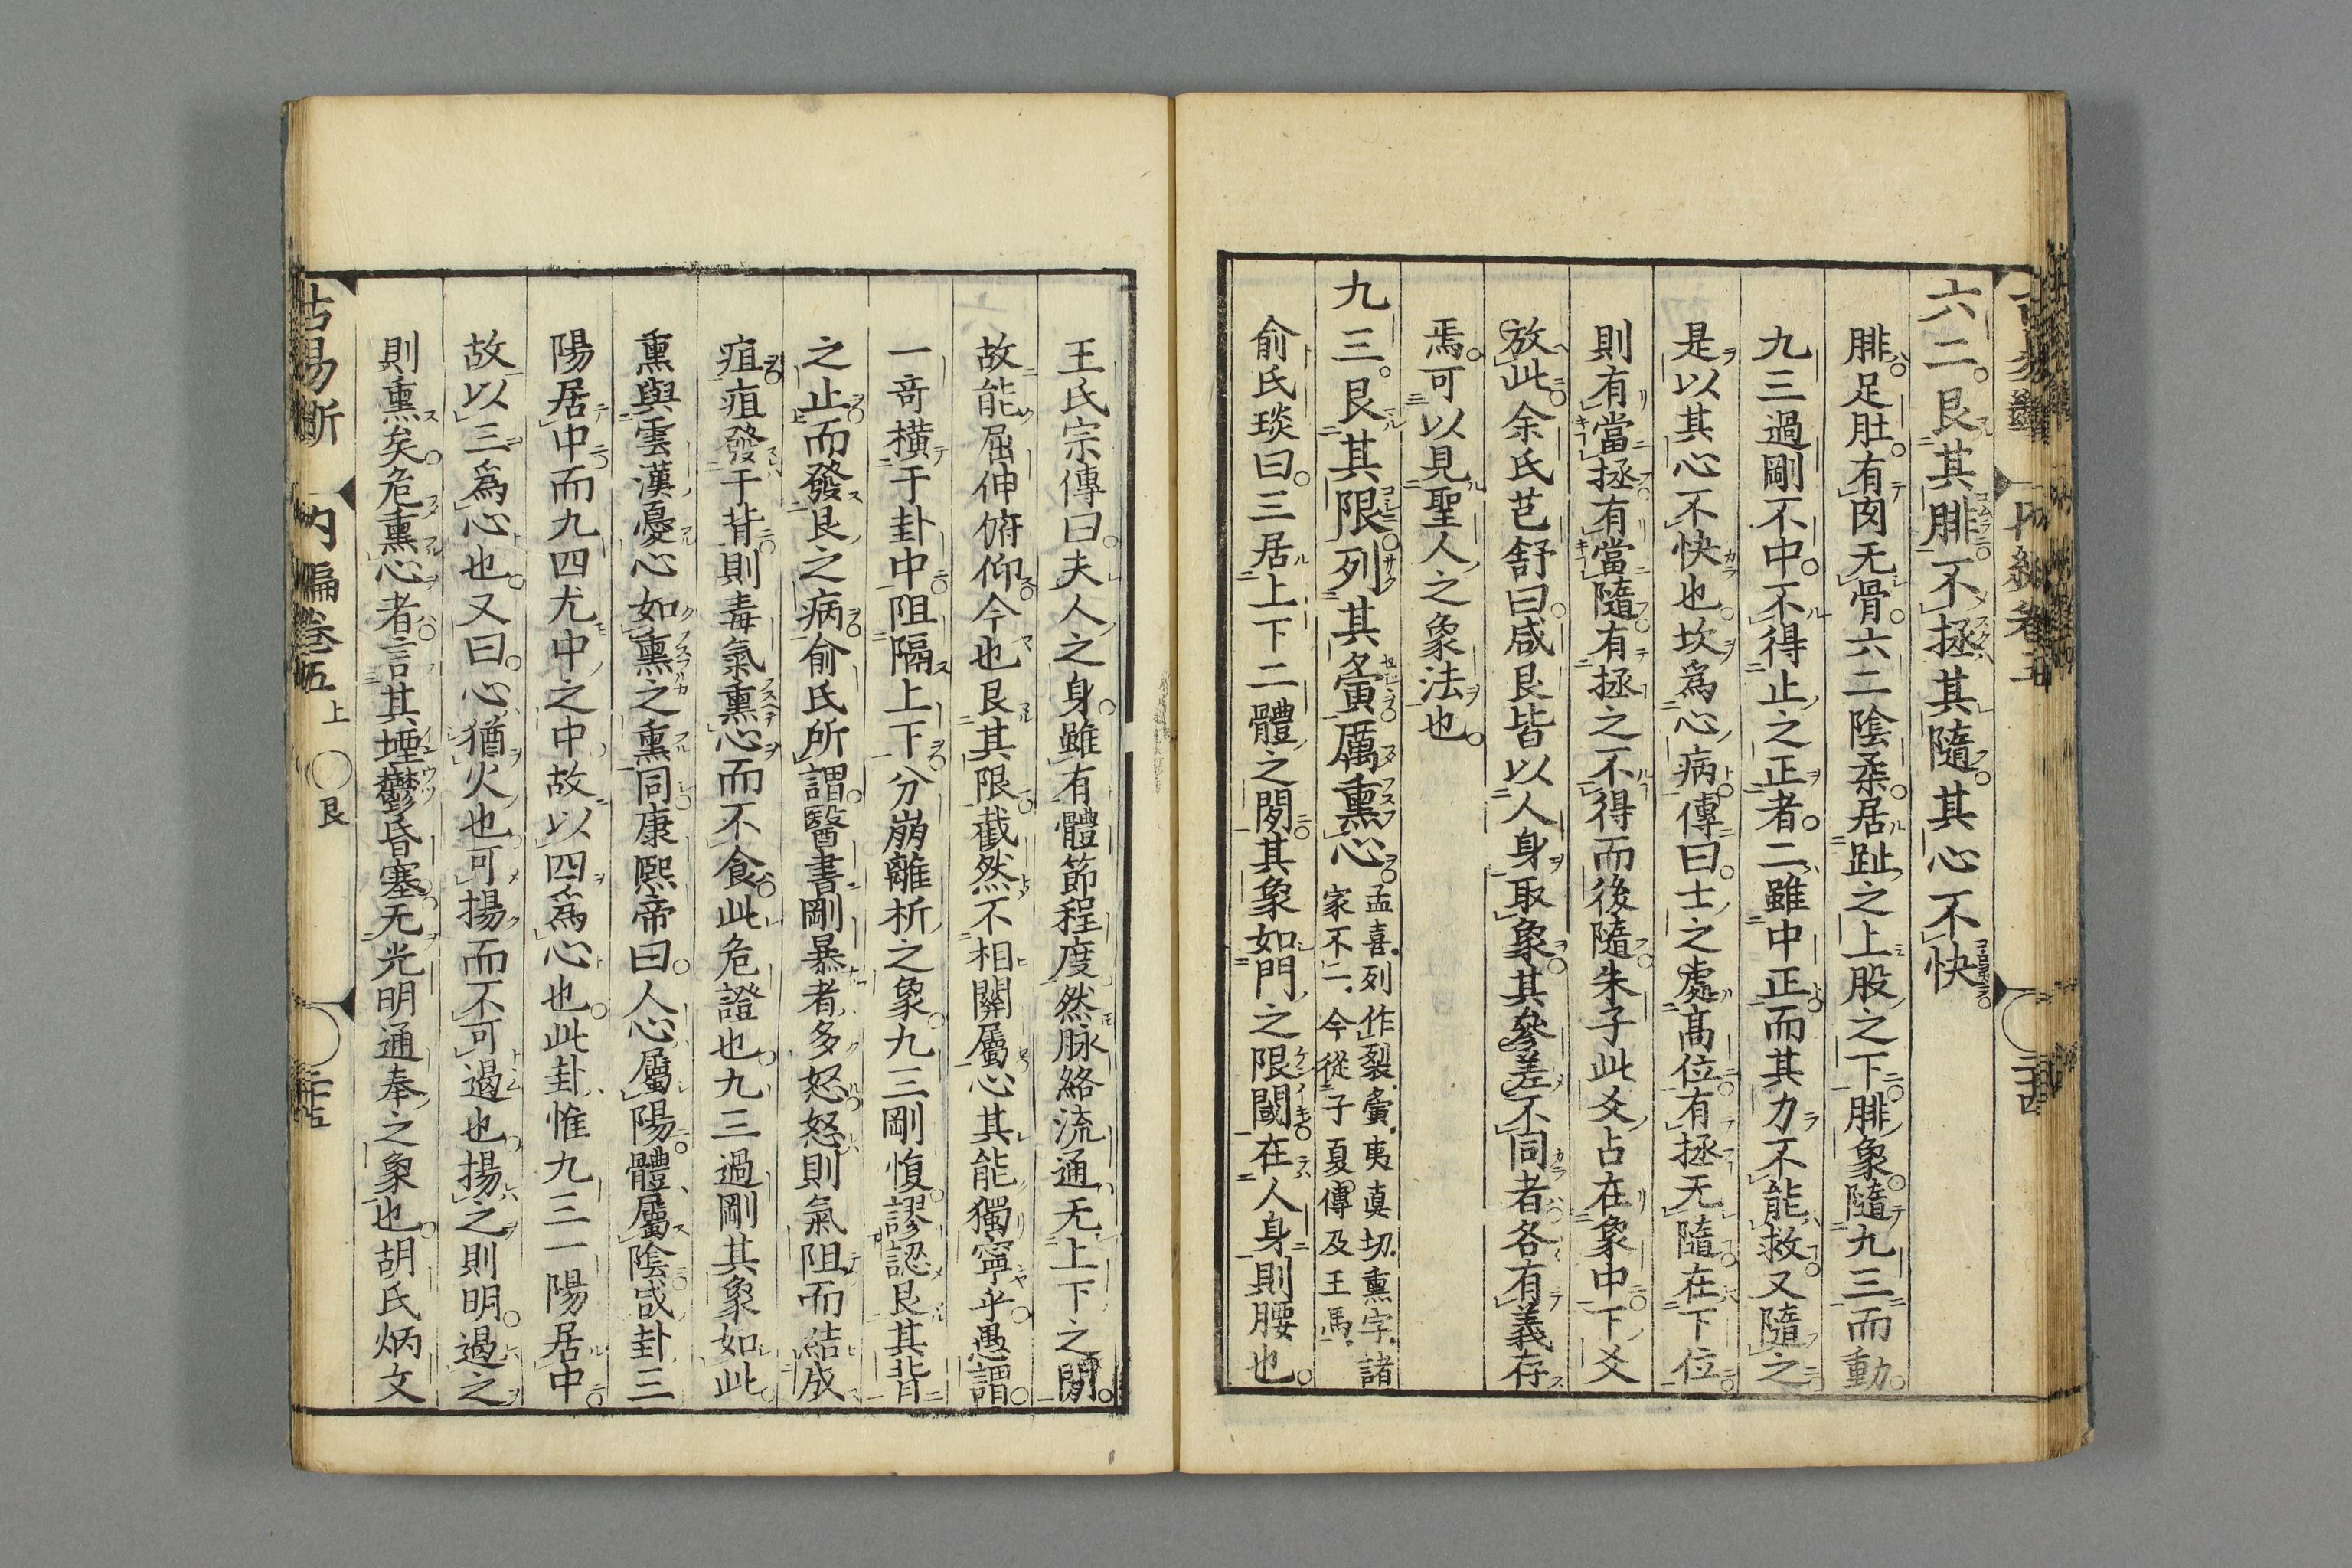 六二。艮其腓不拯其隨其心不快
腓足肚。有肉无骨。六二陰柔。居趾之上股之下腓象。隨九三而動。
九三過剛不中。不得止之正者。二雖中正而其力不能救又隨之
是以其心不快也。坎爲心病傳曰。士之處高位有拯无隨在下位
則有當拯有當隨有拯之不得而後隨朱子此爻占在象中下爻
放此余氏芑舒曰。咸艮皆以人身取象其參差不同者各有義存
焉。可以見聖人之象法也。
九三。艮其限列其夤厲熏心
孟喜。列作裂。夤。夷真切。熏字。諸
家不一。今從子夏傳及王馬。
俞氏琰曰。三居上下二體之間其象如門之限閾在人身則腰也。
王氏宗傳曰。夫人之身。雖有體節程度然脉絡流通无上下之間。
故能屈伸俯仰今也艮其限截然不相關屬心其能獨寧乎。愚謂。
一竒橫于卦中阻隔上下分崩離析之象。九三剛愎。謬認艮其背
之止而發艮之病俞氏所謂。醫書剛暴者多怒怒則氣阻而結成
疽疽發于背則毒氣熏心而不食此危證也。九三過剛其象如此。
熏與雲漢憂心如熏之熏同康熙帝曰。人心屬陽體屬陰咸卦三
陽居中而九四尤中之中故以四爲心也。此卦惟九三一陽居中
故以三爲心也。又曰。心猶火也可揚而不可遏也。揚之則明。遏之
則熏矣。危熏心者言其堙鬱昏塞无光明通泰之象也。胡氏炳文
内編卷五上
艮